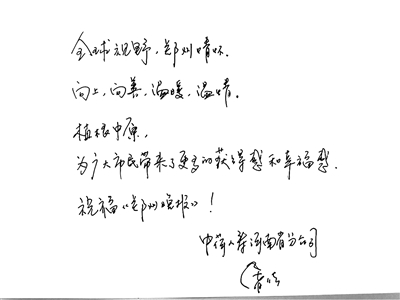 全球视野,郑州情怀.
向上,向善,温暖,温情.
植根中原,
为广大市民带来了更高的获得感和幸福感.
祝福《郑州晚报》!
中荷人寿河南省分公司